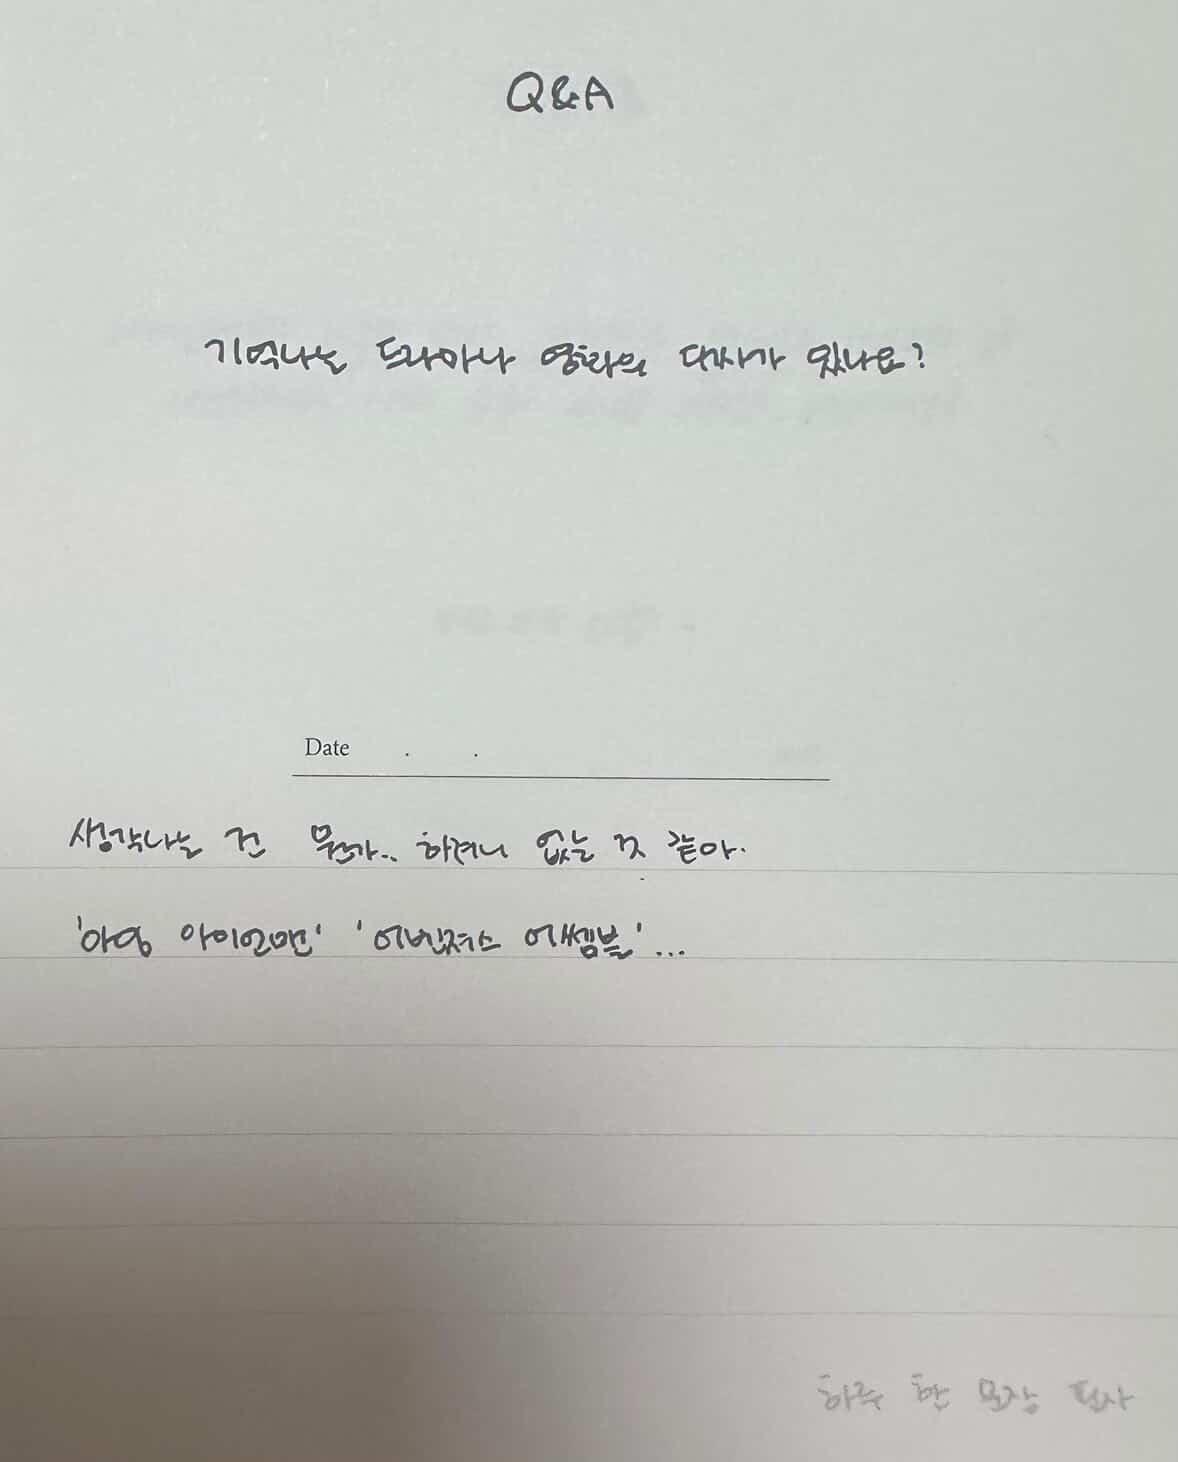 Q&A
기억나는 드라마나 영화의 대사가 있나요?
Date . .
생각나는 건 뭔가.. 하려니 없는 것 같아.
'아임 아이언맨' '어벤져스 어쎔블'...
하루 한 문장 필사